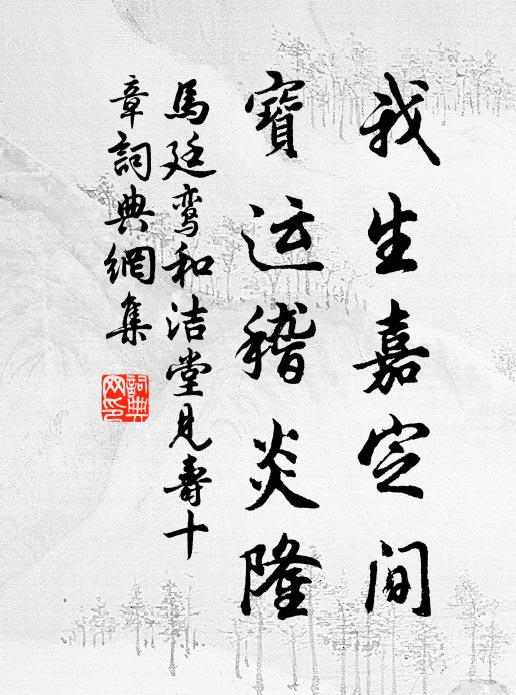 我生嘉定间
寶运稽炎隆
馬廷鸾和洁堂見壽十
章詞典網集
詞典
网印